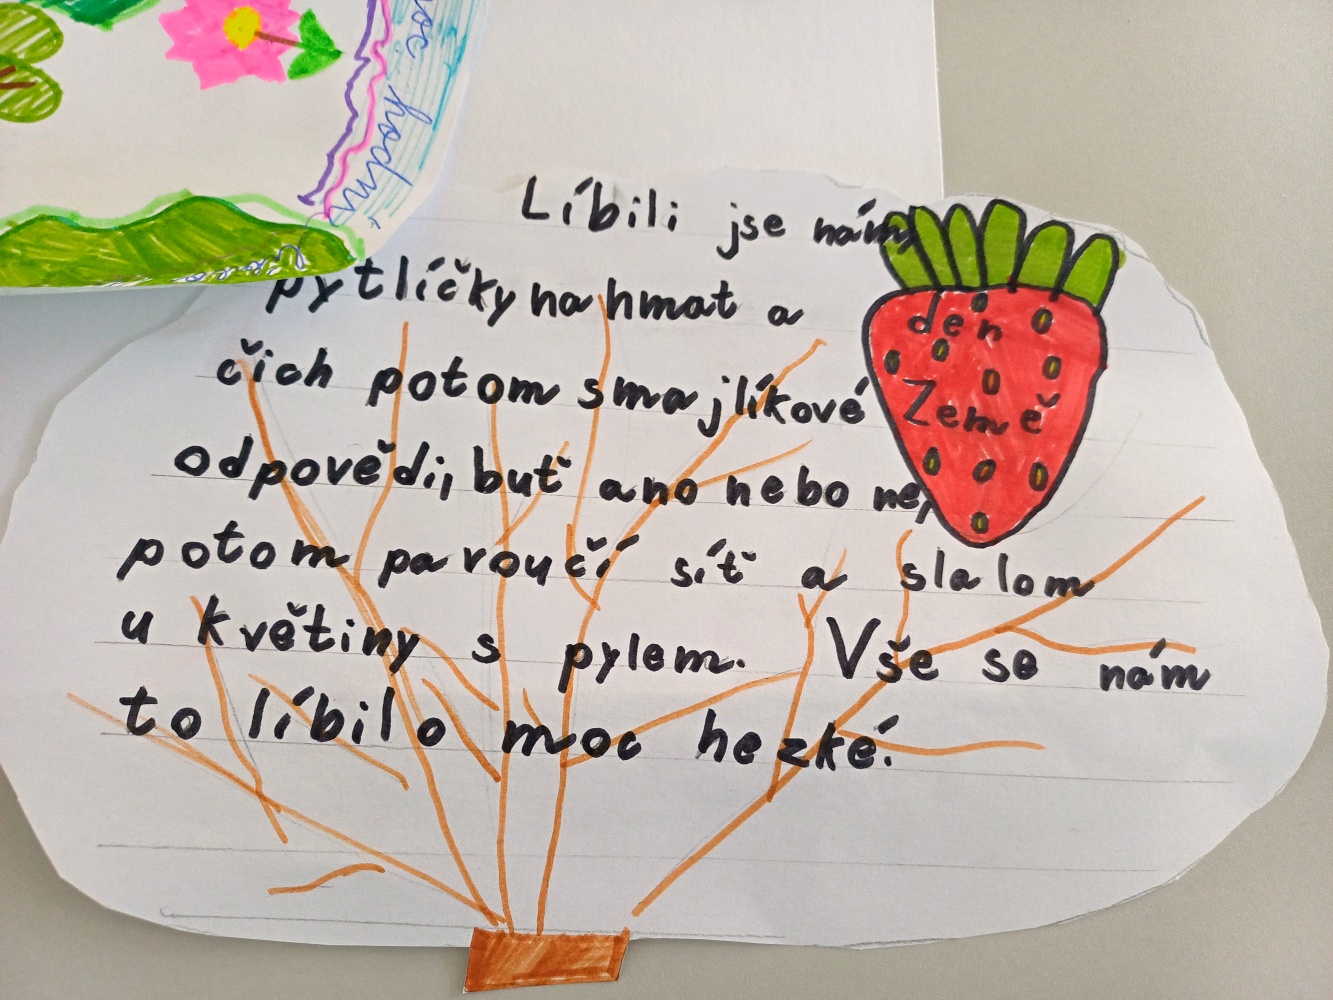 moc hodní
Líbili jse nám
pytlíčky na hmat a
čich potom smajlíkové
odpovědi, buť ano nebo ne,
potom pavoučí síť a slalom
u květiny s pylem. Vše se nám
to líbilo moc hezké.
den
Země